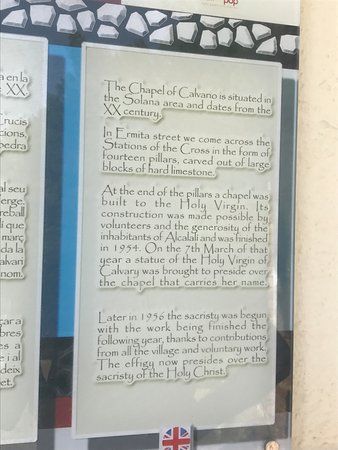 pop
a en la
XX
rucis
cions,
pedra
al seu
erge.
reball
li que
març
da la
alvari
nom.
çar a
bres
es a
i al
deix
et.
The Chapel of Calvano is situated in
the Solana area and dates from the
XX century.
In Ermita street we come across the
Stations of the Cross in the form of
fourteen pillars, carved out of large
blocks of hard limestone.
At the end of the pillars a chapel was
built to the Holy Virgin. Its
construction was made possible by
volunteers and the generosity of the
inhabitants of Alcalalí and was finished
in 1954. On the 7th March of that
year a statue of the Holy Virgin of
Calvary was brought to preside over
the chapel that carries her name.
Later in 1956 the sacristy was begun
with the work being finished the
following year, thanks to contributions
from all the village and voluntary work.
The effigy now presides over the
sacristy of the Holy Christ.